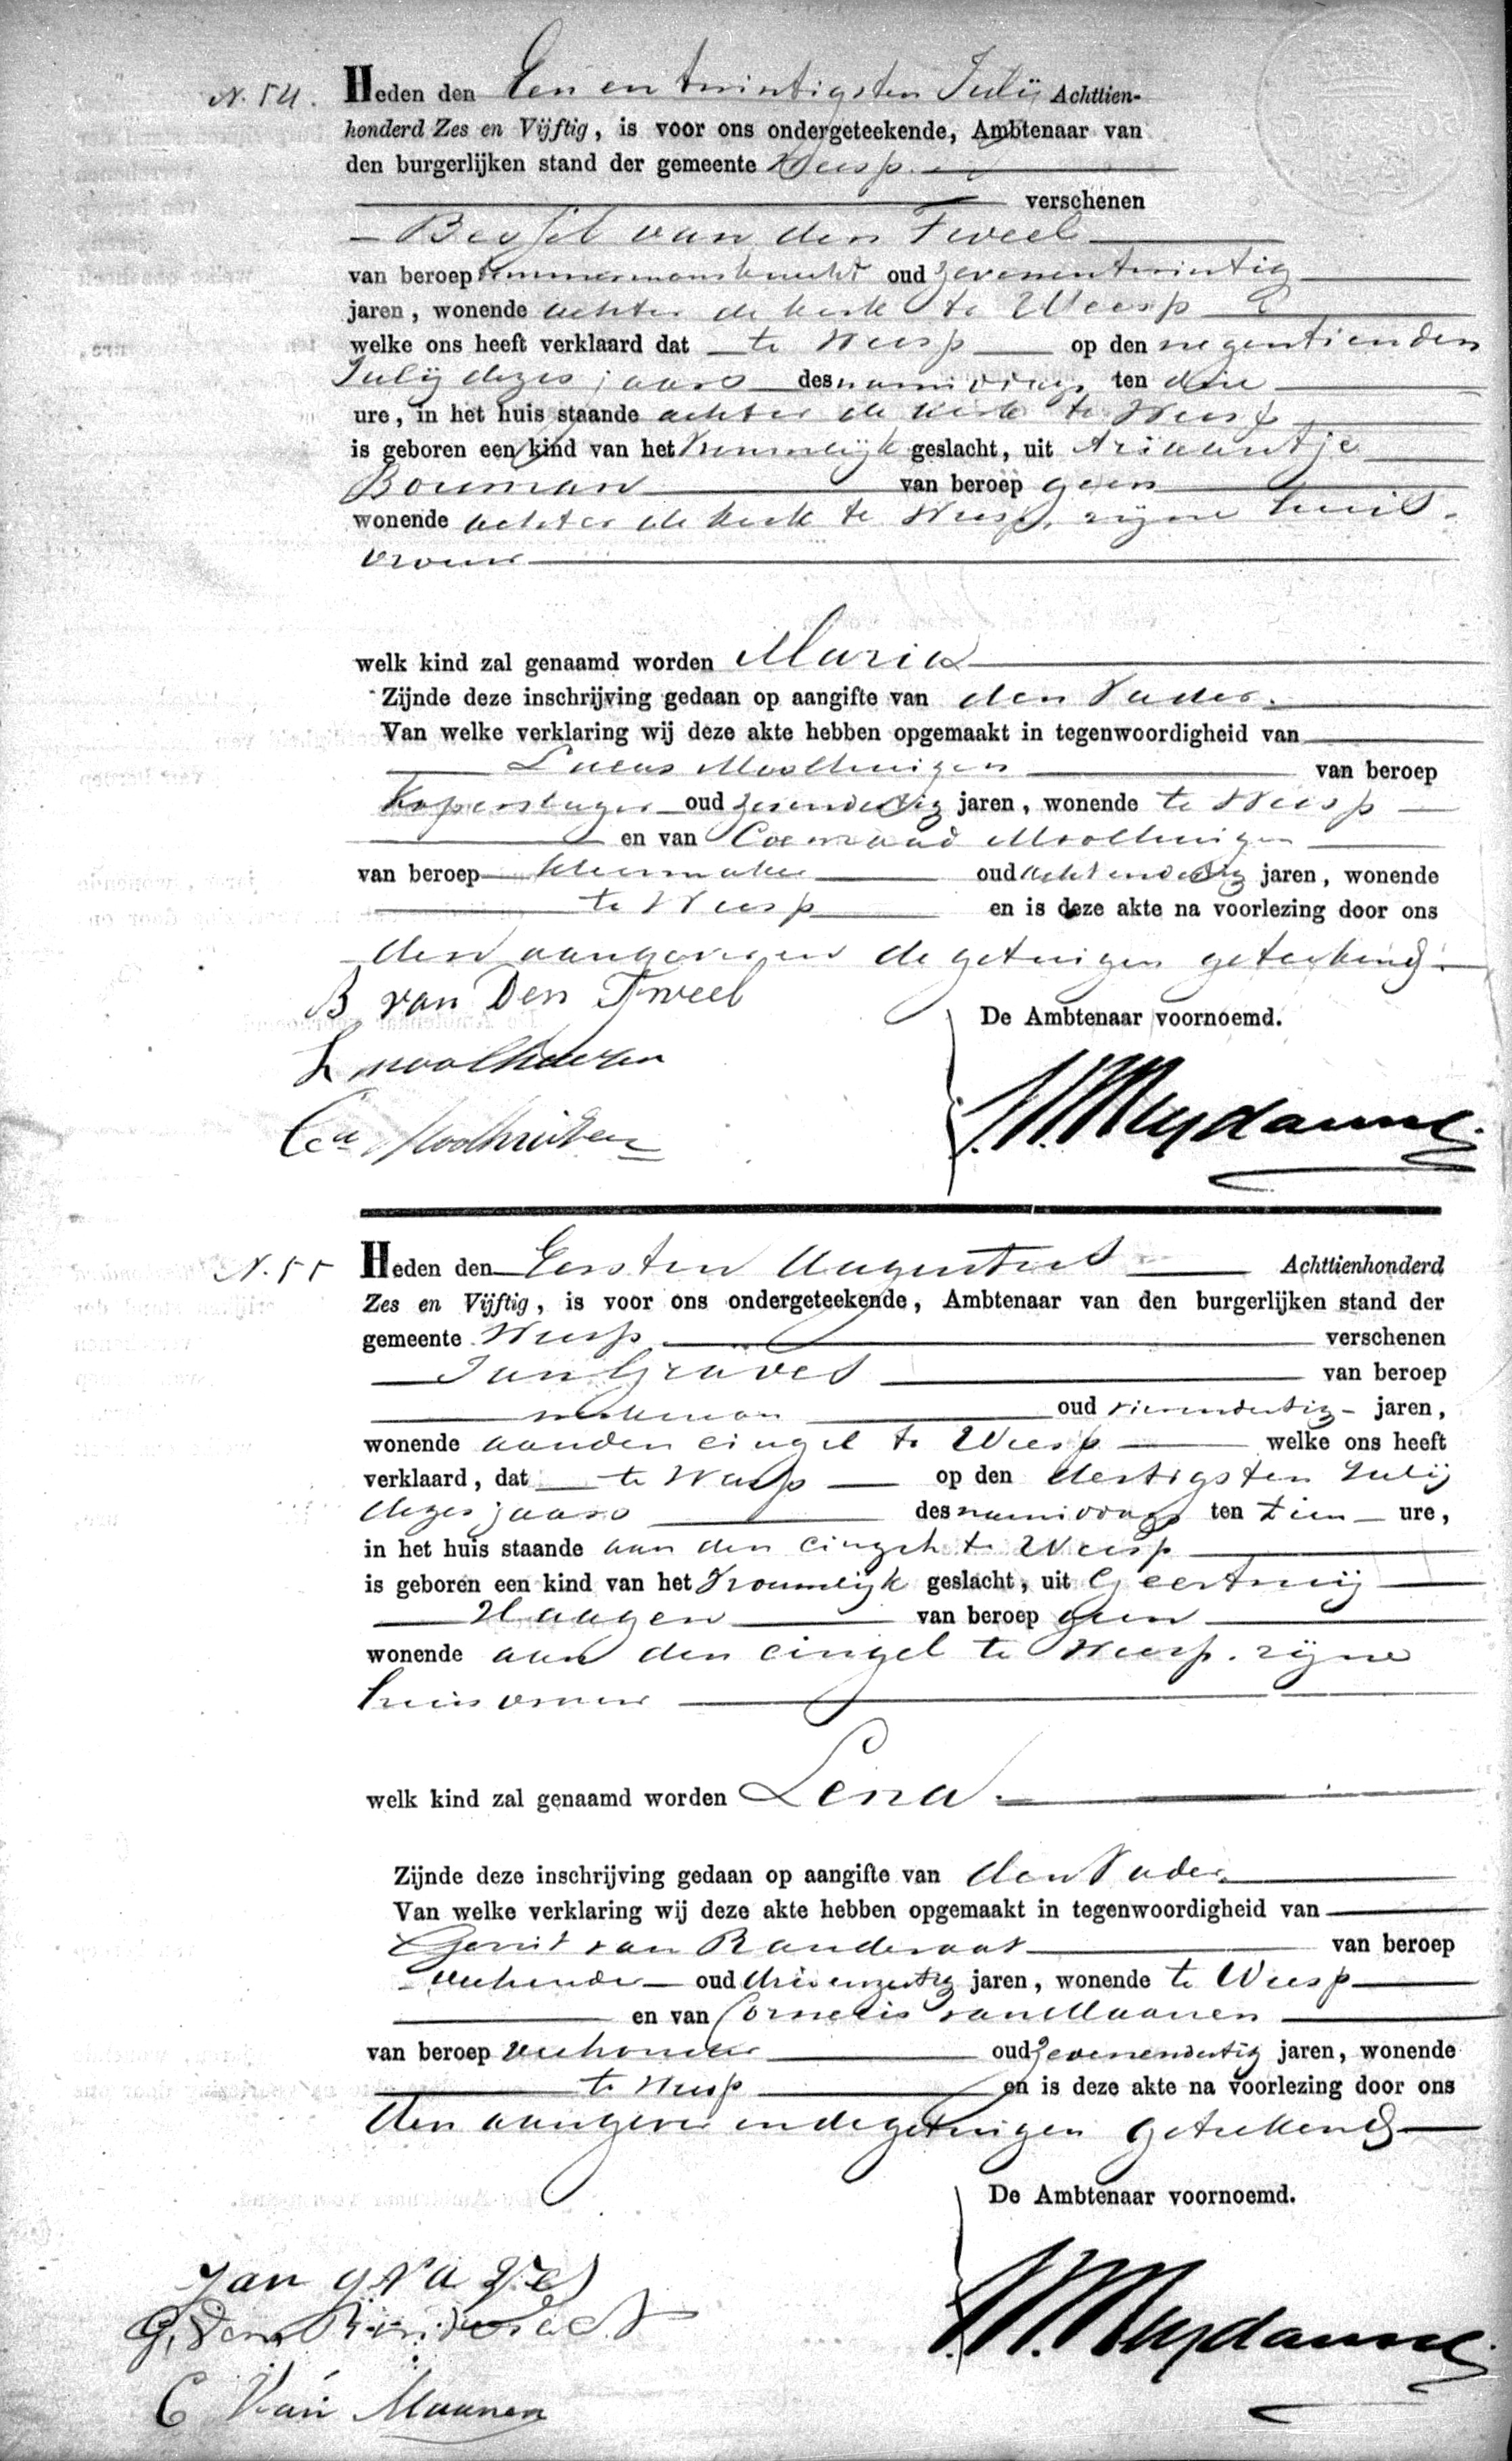 N. 54. Heden den Een en twintigsten Julij Achttien-
honderd Zes en Vijftig, is voor ons ondergeteekende, Ambtenaar van
den burgerlijken stand der gemeente Weesp.
verschenen
Bessel van den Tweel
van beroep timmermansknecht oud zevenentwintig
jaren, wonende achter de kerk te Weesp
welke ons heeft verklaard dat te Weesp op den negentienden
Julij dezes jaars des namiddags ten drie
ure, in het huis staande achter de kerk te Weesp
is geboren een kind van het Vrouwelijk geslacht, uit Ariaantje
Bouman van beroep geen
wonende achter de kerk te Weesp, zijne huis-
vrouw
welk kind zal genaamd worden Maria
Zijnde deze inschrijving gedaan op aangifte van den Vader.
Van welke verklaring wij deze akte hebben opgemaakt in tegenwoordigheid van
Lucas Moolhuizen van beroep
Koperslager oud zesendertig jaren, wonende te Weesp
en van Coenraad Moolhuizen
van beroep kleermaker oud achtendertig jaren, wonende
te Weesp en is deze akte na voorlezing door ons
den aangever en de getuigen geteekend.
B van Den Tweel
De Ambtenaar voornoemd.
L Moolhuizen
Moolhuizen
N. 55 Heden den Eersten Augustus Achttienhonderd
Zes en Vijftig, is voor ons ondergeteekende, Ambtenaar van den burgerlijken stand der
gemeente Weesp. verschenen
Jan Graves van beroep
werkman oud vierendertig jaren,
wonende aan den cingel te Weesp welke ons heeft
verklaard, dat te Weesp op den dertigsten Julij
dezes jaars des namiddags ten tien ure,
in het huis staande aan den cingel te Weesp
is geboren een kind van het Vrouwelijk geslacht, uit Geertruij
Haagen van beroep geen
wonende aan den cingel te Weesp. zijne
huisvrouw
welk kind zal genaamd worden Lena.
Zijnde deze inschrijving gedaan op aangifte van den Vader
Van welke verklaring wij deze akte hebben opgemaakt in tegenwoordigheid van
Gerrit van Randeraat van beroep
veehouder oud drieenzestig jaren, wonende te Weesp
en van Cornelis van Maanen
van beroep veehouder oud zevenendertig jaren, wonende
te Weesp en is deze akte na voorlezing door ons
den aangever en de getuigen geteekend
De Ambtenaar voornoemd.
Jan graves
G. van Randeraat
C van Maanen